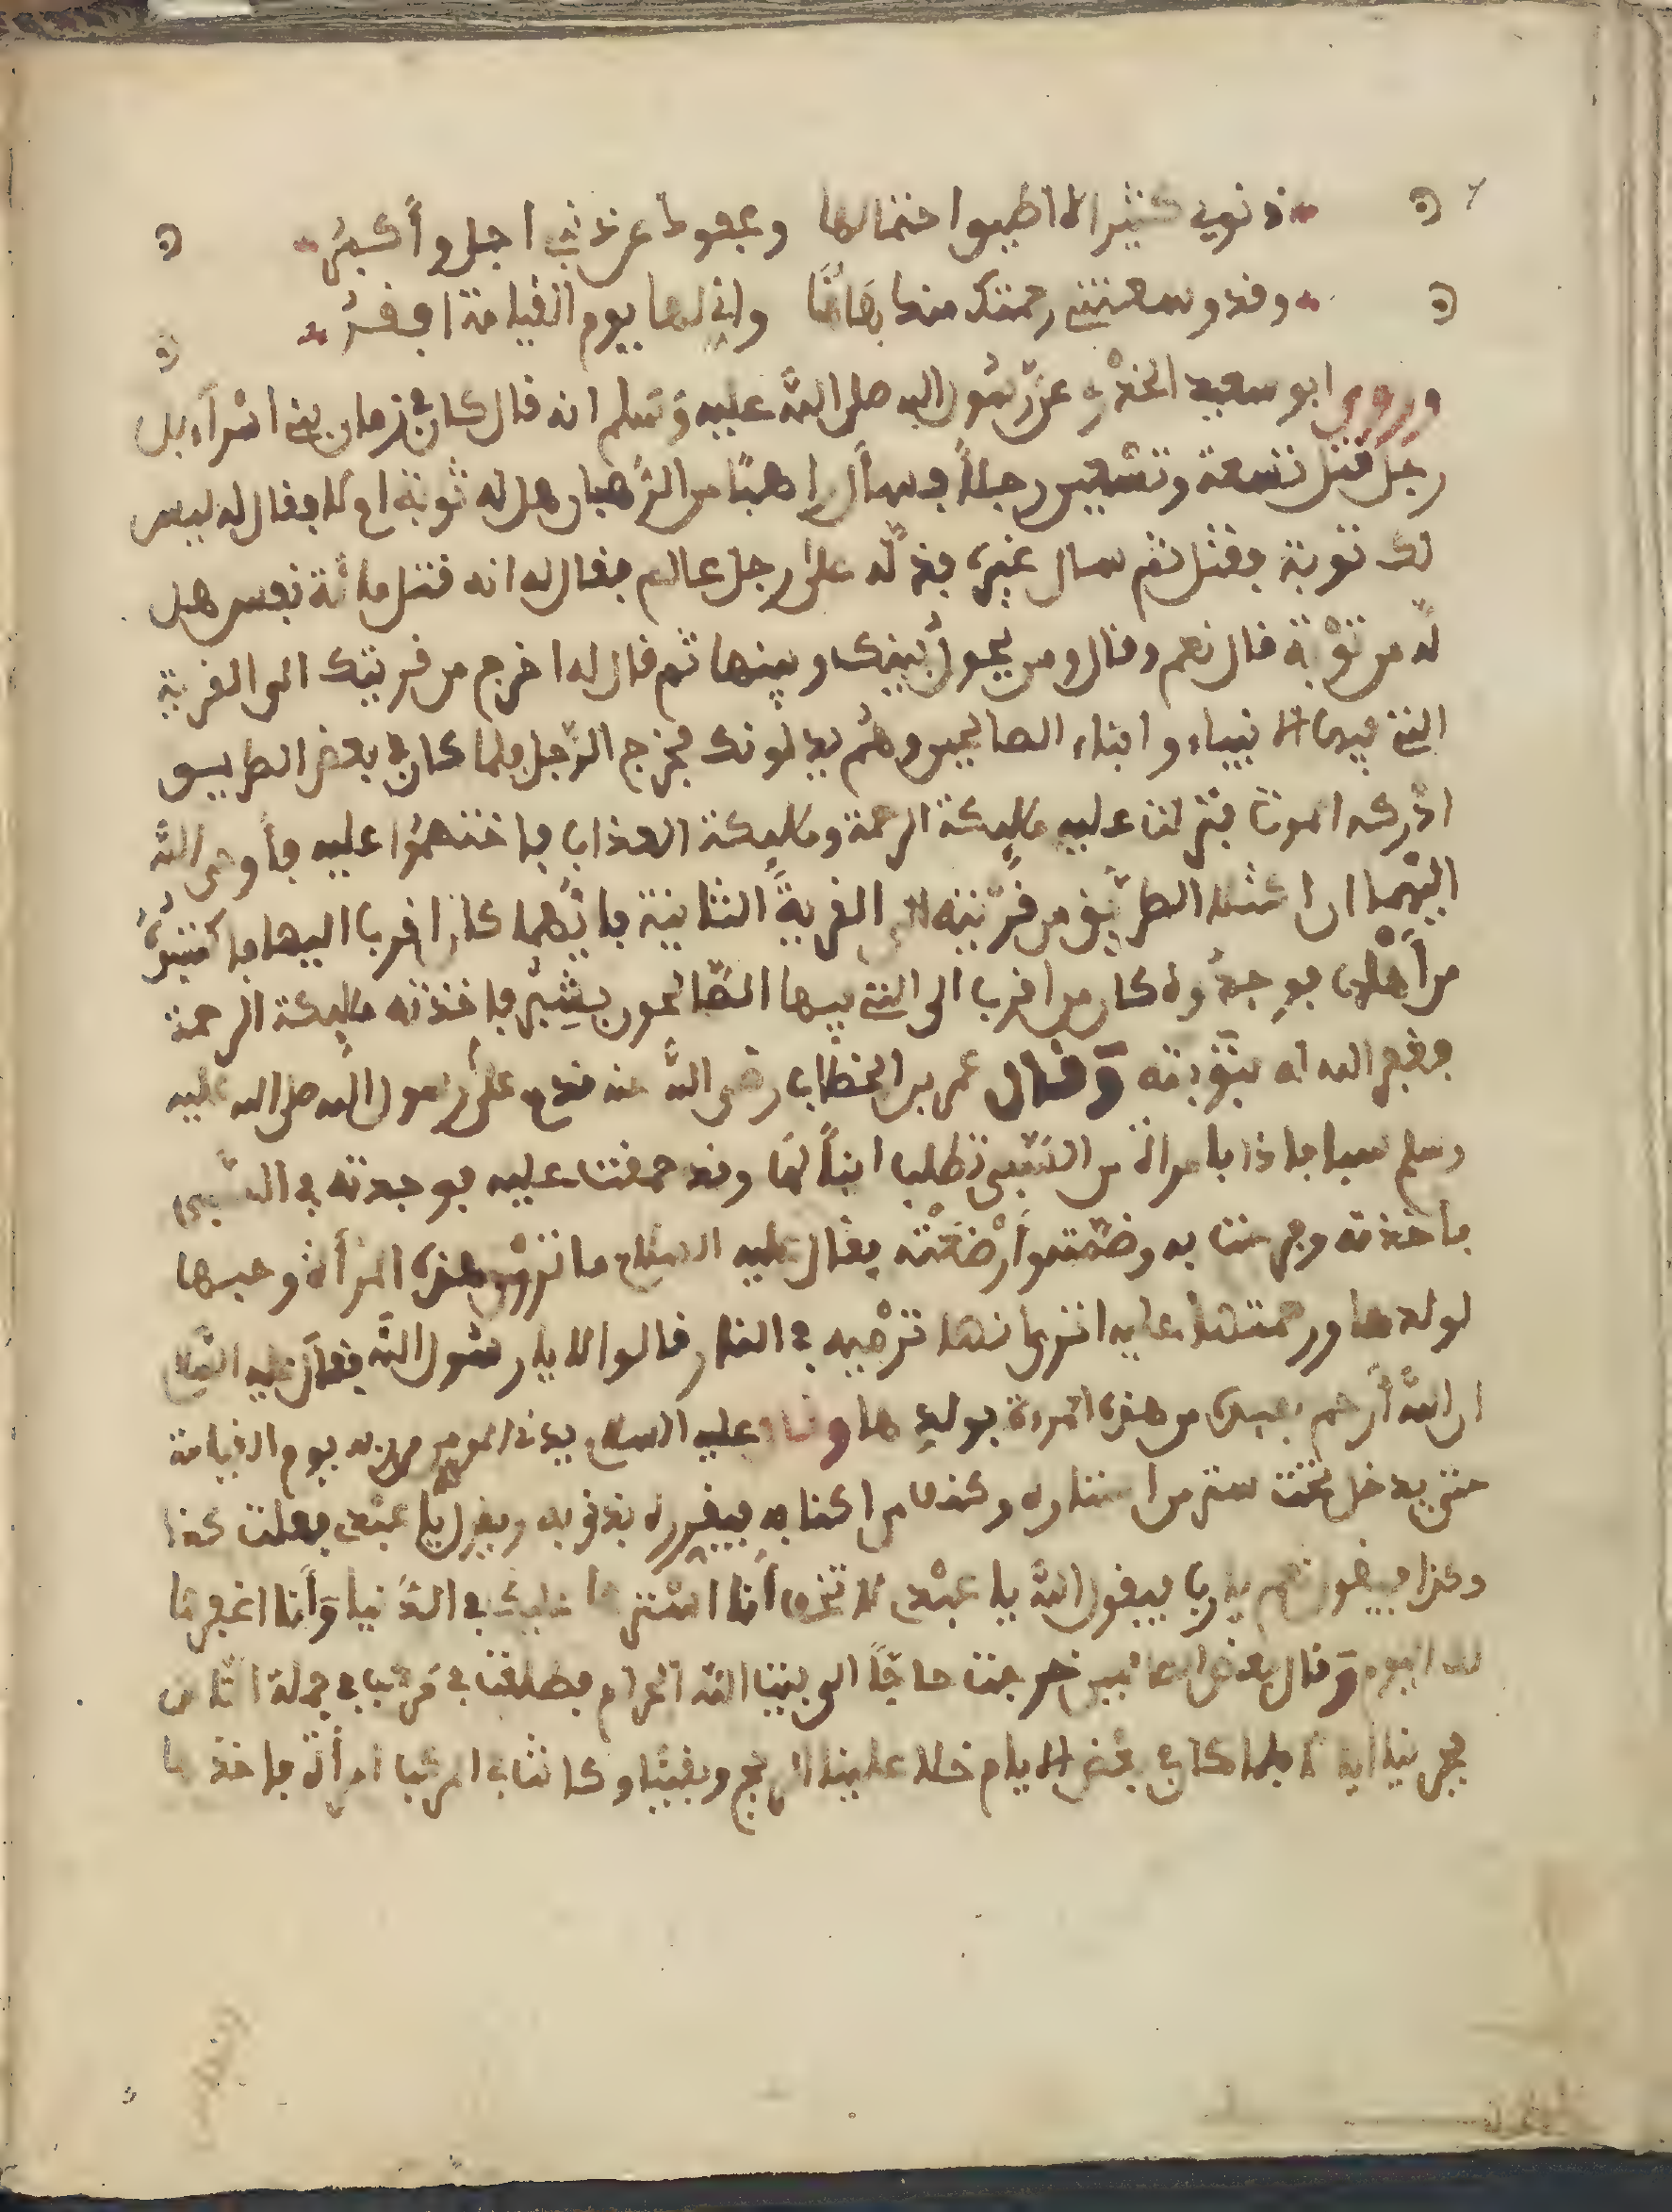 ذنوبي كثيرا لا اطيق احتمالها وعفوك عن ذنبي اجل وأكبر
وقد وسعتني رحمتك منك هاهنا واني لها يوم القيامة افقر
وروى ابو سعيد الخذري عن رسول الله صلى الله عليه وسلم انه قال كان في زمان بني اسراءيل
رجل قتل تسعة وتسعين رجلاً فسأل راهبًا من الرهبان هل له توبة ام لا فقال له ليس
لك توبة فقتل ثم سال غيره فدله على رجل عالم فقال له انه قتل مائة نفس هل
له من توبة قال نعم وقال ومن يحول بينك وبينها ثم قال له اخرج من قريتك الى القرية
التي فيها الانبياء وابناء الصالحين وهم يدلونك فخرج الرجل فلما كان في بعض الطريق
ادركه الموت فنزلت عليه مليكة الرحمة ومليكة العذاب فاختصموا عليه فأوحى الله
اليهما ان اكتلا الطريق من قريته الى القرية الثانية فايهما كان اقرب اليها فاكتبوه
من أهلها فوجدوه كان من اقرب الى التي فيها الصالحون بشبر فاخذته مليكة الرحمة
فغفر الله له بتوبته وقال عمر بن الخطاب رضي الله عنه قدم على رسول الله صلى الله عليه
وسلم سبيا فاذا بامراة من السبي تطلب ابناً لها وقد حمقت عليه فوجدته في السبى
فاخذته وفرحت به وضمته وأرضعته فقال عليه السلام ما ترون هذه المرأة وحبها
لولدها ورحمتها عليه اترى انها ترميه في النار قالوا لا يا رسول الله فقال عليه السلام
ان الله أرحم بعبده من هذه المرءة بولدها وقال عليه السلام يدنى المومن من ربه يوم القيامة
حتى يدخل تحت ستر من استاره وكنف من اكنافه فيقرره بذنوبه ويقول يا عبدى فعلت كذا
وكذا فيقول نعم يا رب فيقول الله يا عبدى لا تخف أنا استرتها عليك في الدنيا وأنا اغفرها
لك اليوم وقال بعض خرجت حاجًا الى بيت الله الحرام فطلعت في مركب في جملة الناس
فجرينا اياما فلما كان في بعض الايام خلا علينا الريح وبقينا وكانت في المركب امرأة فاخذها